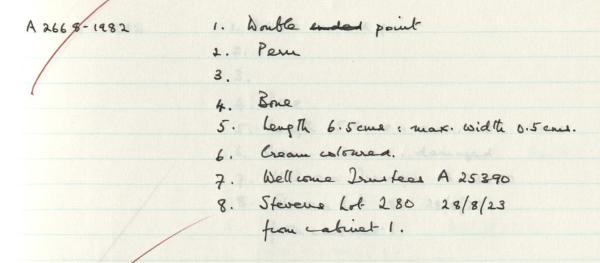 A 2668-1982 1. Double ended point
2. Peru
3.
4. Bone
5. Length 6.5cms : max. width 0.5cms.
6. Cream coloured.
7. Wellcome Trustees A 25390
8. Stevens Lot 280 28/8/23
from cabinet 1.